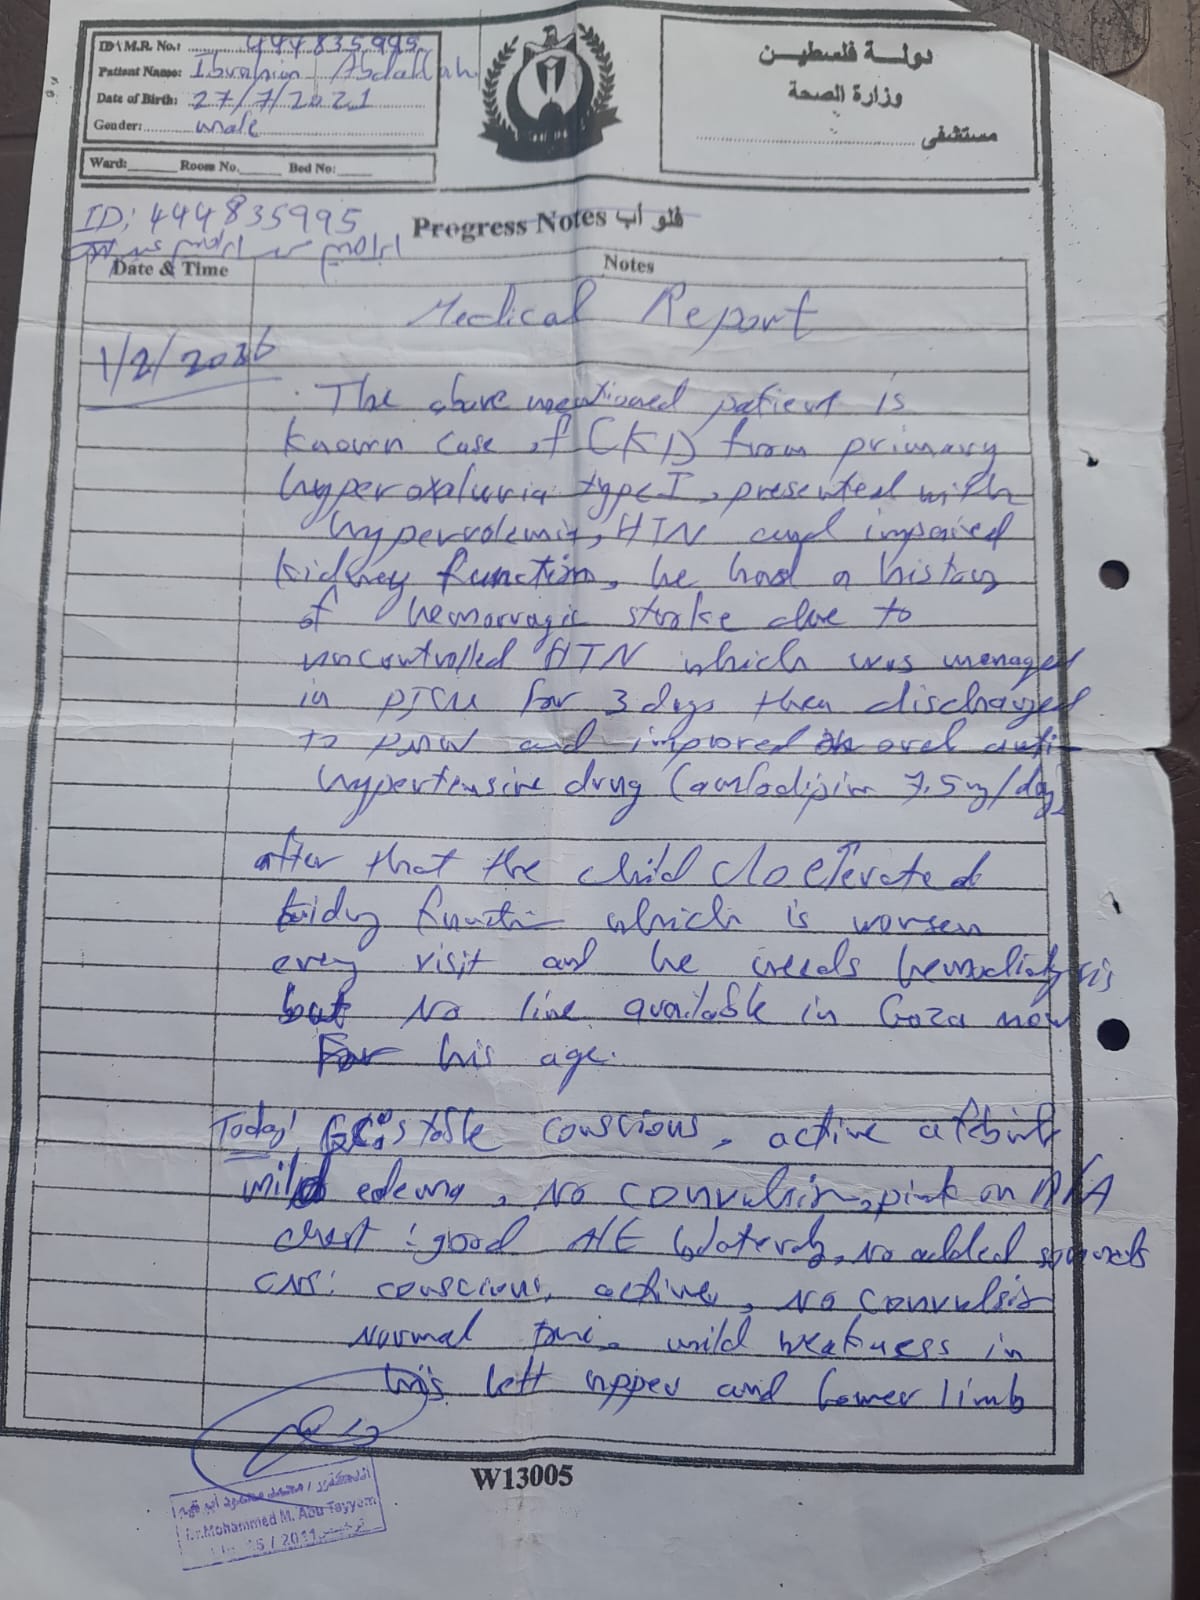 ID\M.R. No.: 444835995
Patient Name: Ibrahim Abdallah
Date of Birth: 27/7/2021
Gender: male
Ward: Room No. Bed No:
دولة فلسطين
وزارة الصحة
مستشفى
ID: 444835995
ابراهيم
Progress Notes فلو أب
Date & Time Notes
Medical Report
1/2/2026
The above mentioned patient is
known case of CKD from primary
hyperoxaluria type I, presented with
hypervolemia, HTN and impaired
kidney function, he had a history
of hemorragic stroke due to
uncontrolled HTN which was managed
in PICU for 3 days then discharged
to and improved oral anti-
hypertensive drug (amlodipin 7.5 mg/day)
after that the child elevated
kidny function which is worsen
every visit and he needs hemodialysis
but No line available in Gaza now
For his age.
Today: stable conscious, active afebrile
mild edema, No convulsion, pink on R/A
chest: good A/E bilateraly, No added sounds
CNS: conscious, active, No convulsion
Normal tone, mild weakness in
his left upper and lower limb
W13005
الدكتور / محمد محمود ابو تيم
Dr.Mohammed M. Abu Tayyem